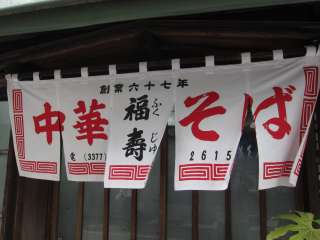 創業六十七年
中華 福寿 そば
ふく じゅ
電 (3377) 2615